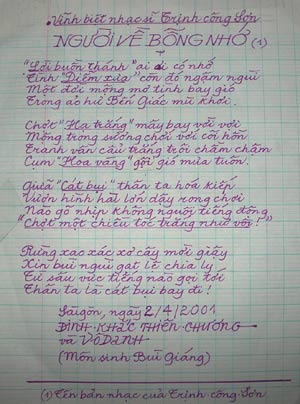 Vĩnh biệt nhạc sĩ Trịnh Công Sơn
NGƯỜI VỀ BỖNG NHỚ (1)
"Lời buồn thánh" ai ai có nhớ
Tình "Diễm xưa" còn đó ngậm ngùi
Một đời mộng mơ tinh bay gió
Trong ao hư Bến Giác mù khơi.
Chợt "Hạ trắng" mây bay vời vời
Mộng trong sương chơi với cõi hồn
Tranh vân cẩu trắng trôi chầm chậm
Cụm "Hoa vàng" gội gió mưa tuôn.
Quữa "Cát bụi" thân ta hóa kiếp
Vượn hình hài lớn dậy rong chơi
Nào gõ nhịp không người tiếng động
"Chợt một chiều tóc trắng như vôi!"
Rừng xao xác xơ cây mời giấy
Xin bùi ngùi gạt lệ chia ly
Từ sâu vực tiếng nào gọi tới
Thân ta là cát bụi bay đi!
Saigon, ngày 2/4/2001
ĐINH-KHẮC THIÊN-CHƯƠNG
và VÔDANH
(Môn sinh Bùi Giáng)
(1) Tên bản nhạc của Trịnh Công Sơn